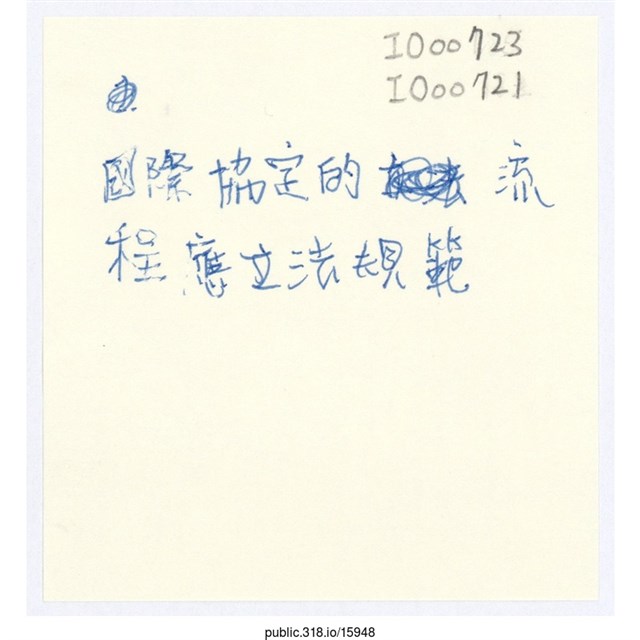 IO00723
IO00721
國際協定的流
程應立法規範
public.318.io/15948